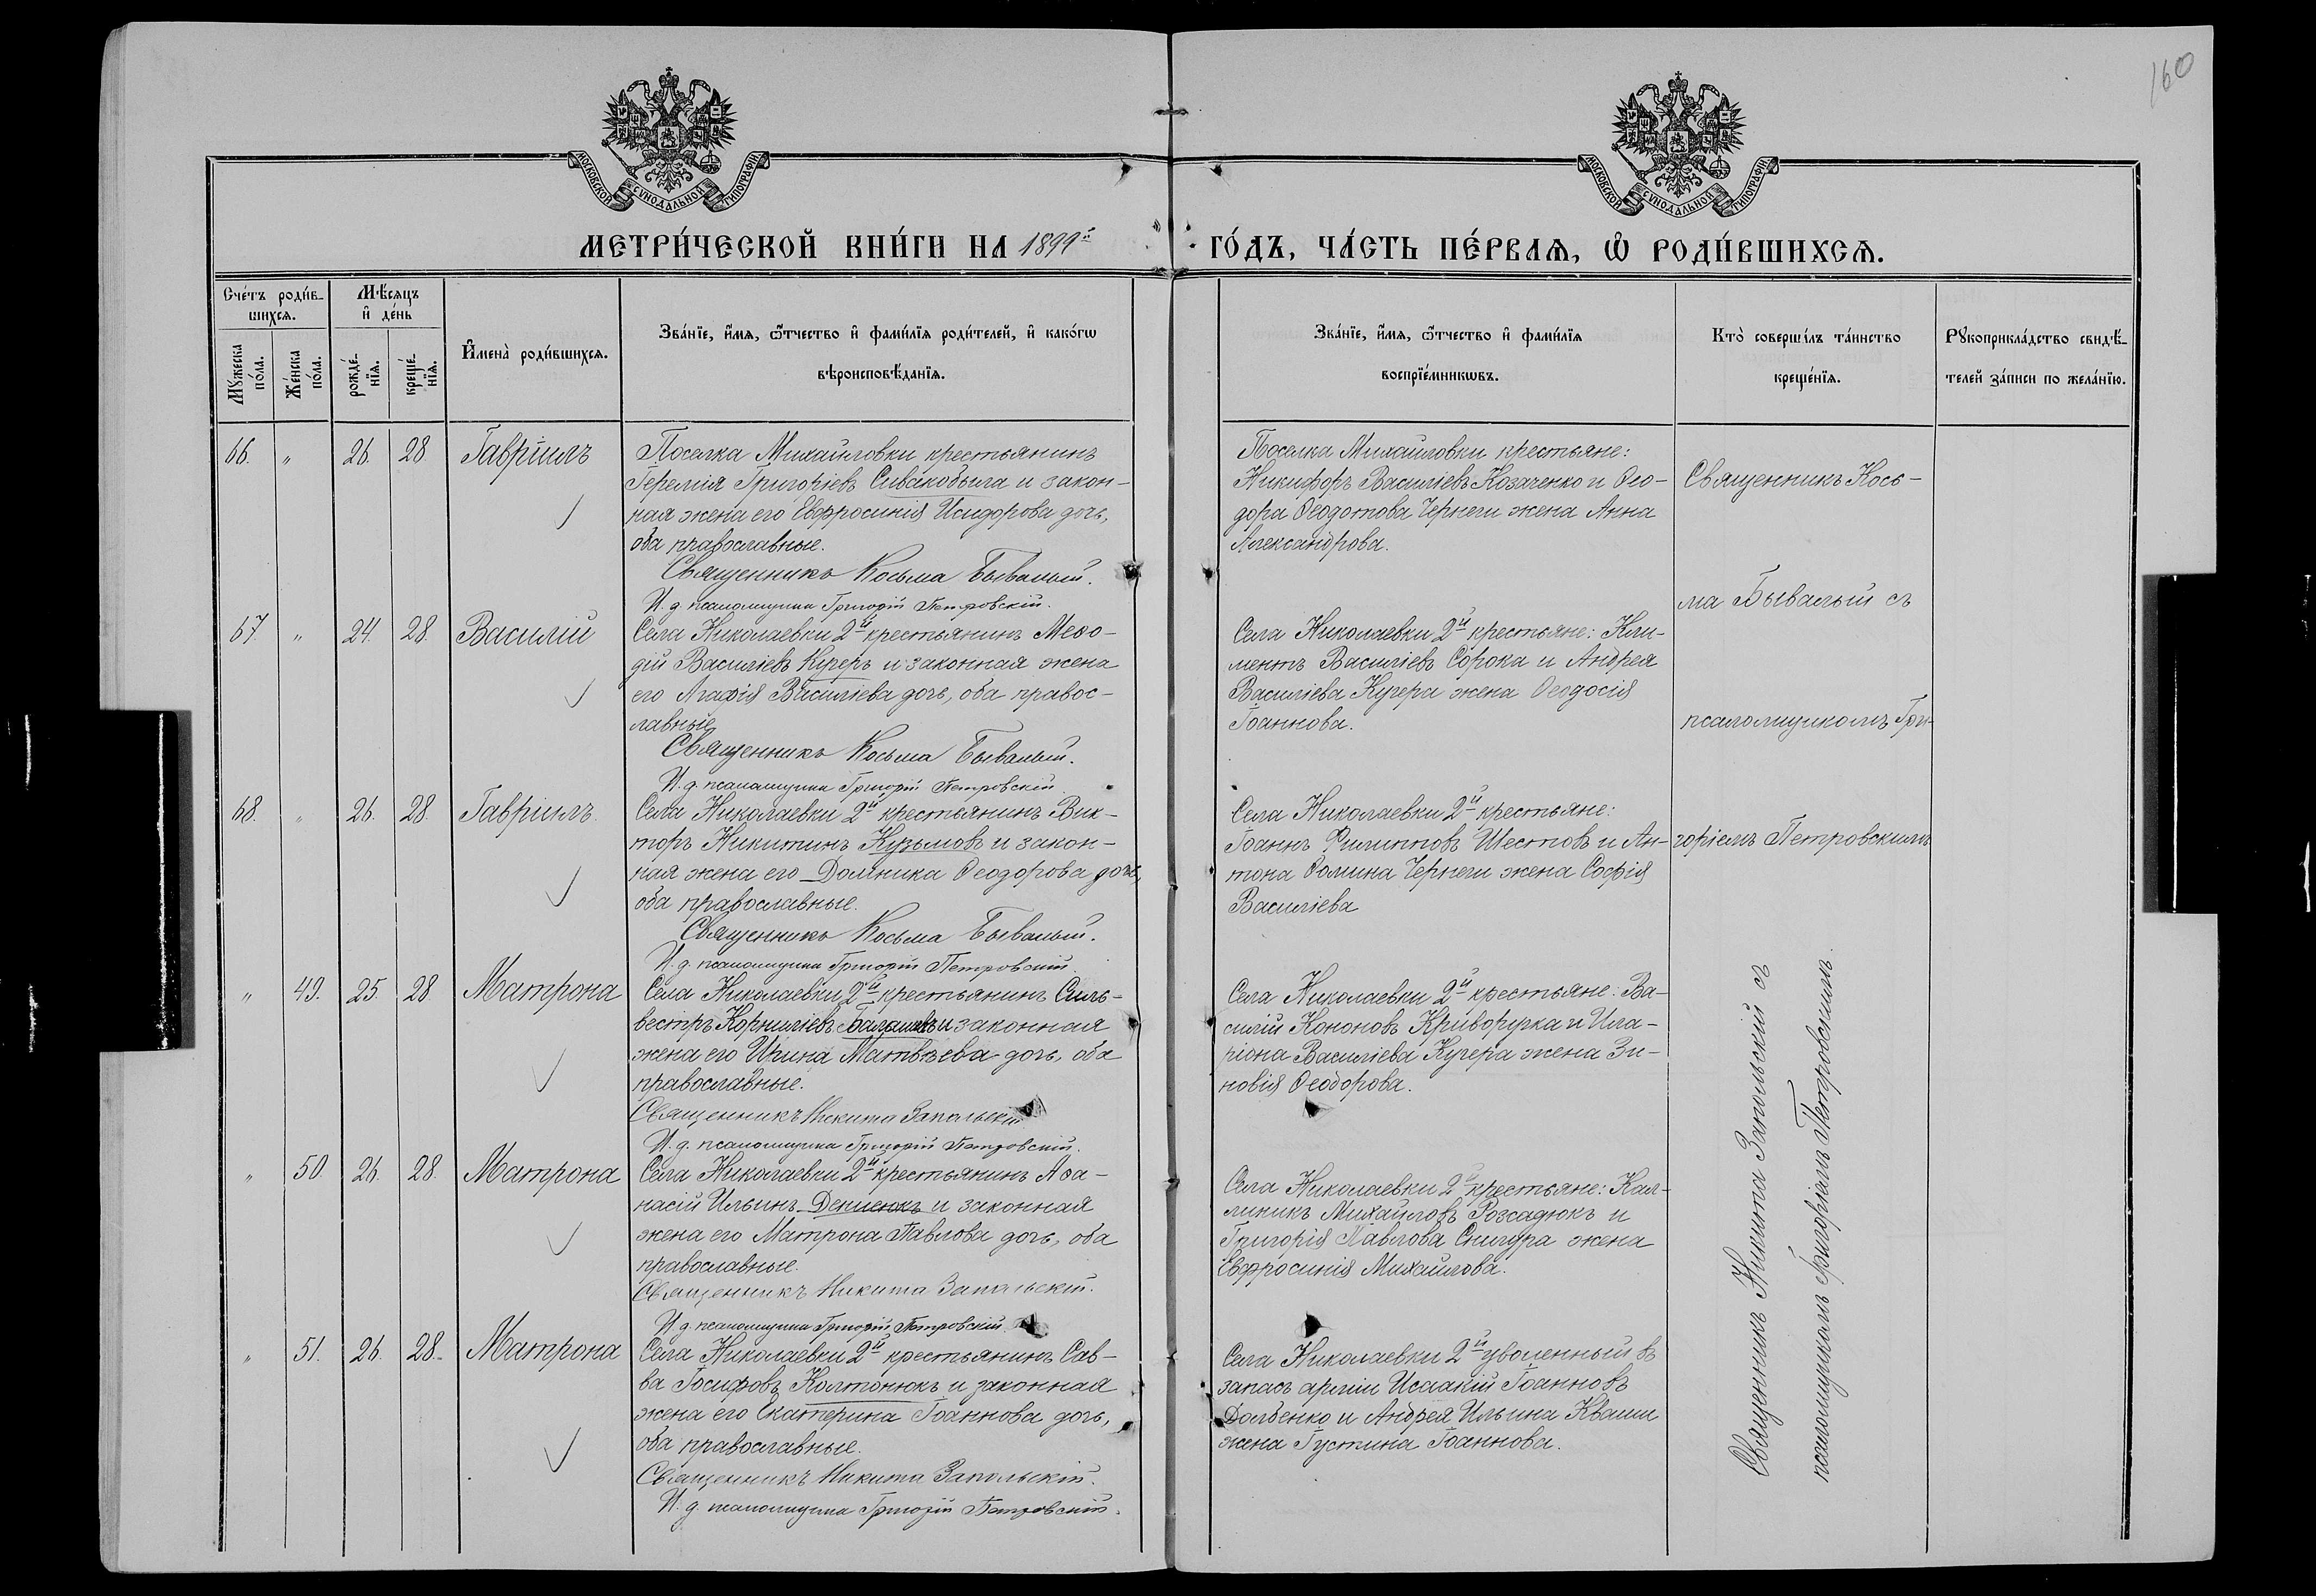 160
МОСКОВСКОЙ СѴНОДАЛЬНОЙ ТИПОГРАФІИ
МОСКОВСКОЙ СѴНОДАЛЬНОЙ ТИПОГРАФІИ
МЕТРИ́ЧЕСКОЙ КНИ́ГИ НА 1899й ГО́ДЪ, ЧА́СТЬ ПЕ́РВАѦ, Ѽ РОДИ́ВШИХСѦ.
Сче́тъ роди́в-
шихсѧ.
Мѣ́сѧцъ
и҆ де́нь
Мꙋ́жеска по́ла.
Же́нска по́ла.
рожде́-
нїѧ.
креще́-
нїѧ.
И҆мена̀ роди́вшихсѧ.
Зва́нїе, и҆́мѧ, ѻ҆́тчество и҆ фами́лїѧ роди́телей, и҆ како́гѡ
вѣроисповѣ́данїѧ.
Зва́нїе, и҆́мѧ, ѻ҆́тчество и҆ фами́лїѧ
воспрїе́мникѡвъ.
Кто̀ соверши́лъ та́инство
креще́нїѧ.
Рꙋкоприкла́дство свидѣ́-
телей за́писи по жела́нїю.
66. " 26. 28 Гавріилъ
Поселка Михайловки крестьянинъ
Іеремія Григоріевъ Сивакобыла и закон-
ная жена его Евфросинія Исидорова дочь,
оба православные.
Священникъ Косьма Бывалый.
И. д. псаломщика Григорій Петровскій.
Поселка Михайловки крестьяне:
Никифоръ Василіевъ Козаченко и Ѳео-
дора Ѳеодотова Чернеги жена Анна
Александрова.
Священникъ Кось-
ма Бывалый съ
псаломщикомъ Гри-
горіемъ Петровскимъ
67. " 24. 28. Василій
Села Николаевки 2й крестьянинъ Меѳо-
дій Василіевъ Кучеръ и законная жена
его Агафія Василіева дочь, оба правос-
лавные
Священникъ Косьма Бывалый.
И. д. псаломщика Григорій Петровскій
Села Николаевки 2й крестьяне: Кли-
ментъ Василіевъ Сорока и Андрея
Василіева Кучера жена Ѳеодосія
Іоаннова.
68. " 26. 28. Гавріилъ.
Села Николаевки 2й крестьянинъ Вик-
торъ Никитинъ Кузьмовъ и закон-
ная жена его Домника Ѳеодорова дочь,
оба православные.
Священникъ Косьма Бывалый.
И. д. псаломщика Григорій Петровскій.
Села Николаевки 2й крестьяне:
Іоаннъ Филипповъ Шестовъ и Ан-
тона Ѳомина Чернеги жена Софія
Василіева
" 49. 25. 28 Матрона
Села Николаевки 2й крестьянинъ Силь-
вестръ Корниліевъ и законная
жена его Ирина Матвѣева дочь, оба
православные.
Священникъ Никита Запольскій
И. д. псаломщика Григорій Петровскій.
Села Николаевки 2й крестьяне: Ва-
силій Кононовъ Криворучка и Ила-
ріона Василіева Кучера жена Зи-
новія Ѳеодорова.
Священникъ Никита Запольскій съ
псаломщикомъ Григоріемъ Петровскимъ.
" 50. 26. 28. Матрона
Села Николаевки 2й крестьянинъ Аѳа-
насій Ильинъ Денисюкъ и законная
жена его Матрона Павлова дочь, оба
православные.
Священникъ Никита Запольскій.
И д. псаломщика Григорій Петровскій
Села Николаевки 2й крестьяне: Кал-
линикъ Михайловъ Розсадюкъ и
Григорія Павлова Снигура жена
Евфросинія Михайлова.
" 51. 26. 28. Матрона
Села Николаевки 2й крестьянинъ Сав-
ва Іосифовъ Колтонюкъ и законная
жена его Екатерина Іоаннова дочь,
оба православные.
Священникъ Никита Запольскій.
И. д. псаломщика Григорій Петровскій.
Села Николаевки 2й уволенный въ
запасъ арміи Исаакій Іоанновъ
Долбенко и Андрея Ильина Кваши
жена Іустина Іоаннова.